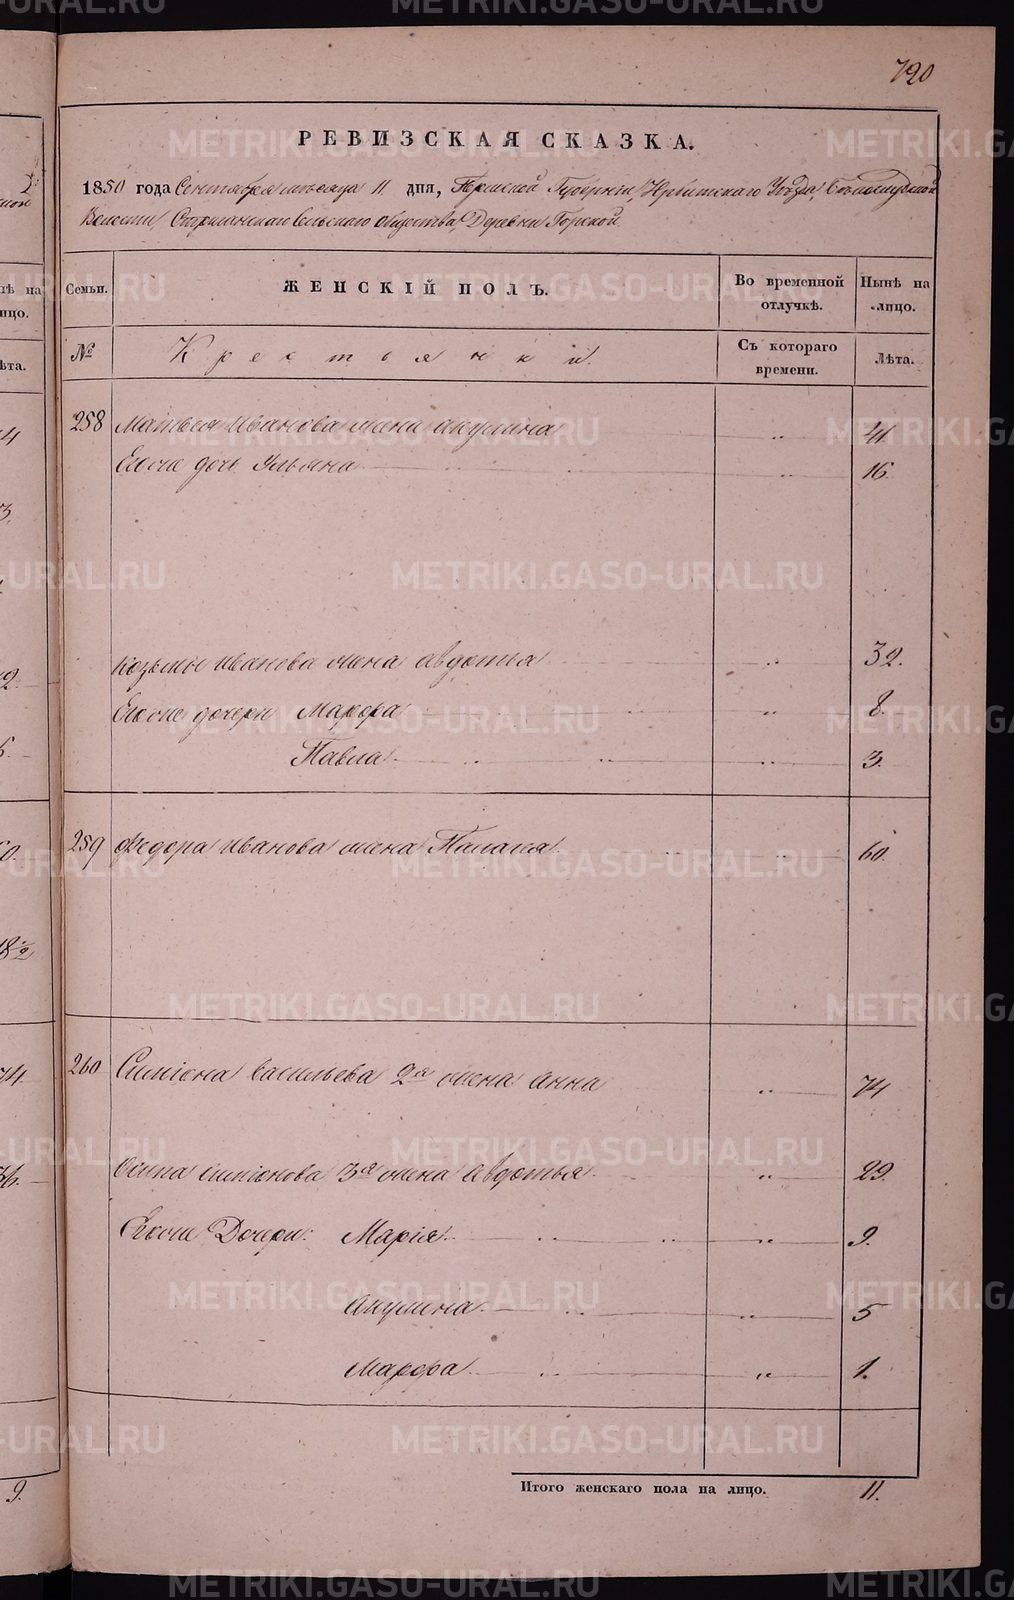 720
РЕВИЗСКАЯ СКАЗКА.
1850 года Сентября месяца 11 дня, Пермской Губернии, Ирбитского Уѣзда, Бѣлослудской
Волости, Сельского общества, Деревни Горской.
Семьи. ЖЕНСКІЙ ПОЛЪ. Во временной отлучкѣ. Нынѣ на лицо.
№ Крестьянки Съ котораго времени. Лѣта.
258 Матвея Иванова жена Акулина 41
Егоже дочь Ульяна 16.
Козьмы Иванова жена Авдотья 32.
Егоже дочери Марфа 8
Павла 3.
259 Федора Иванова жена Палагея 60.
260 Симіона Васильева 2я жена Анна 74
Осипа Симионова 3я жена Авдотья 29.
Егоже Дочери: Марія 9.
Акулина 5
Марфа 1.
Итого женскаго пола на лицо. 11.
нѣ на
ицо.
ѣта.
9.
METRIKI.GASO-URAL.RU